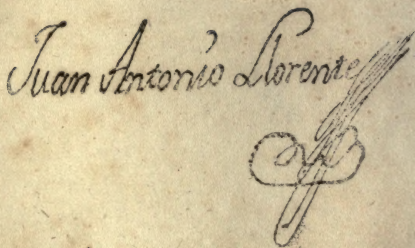 Juan Antonio Llorente